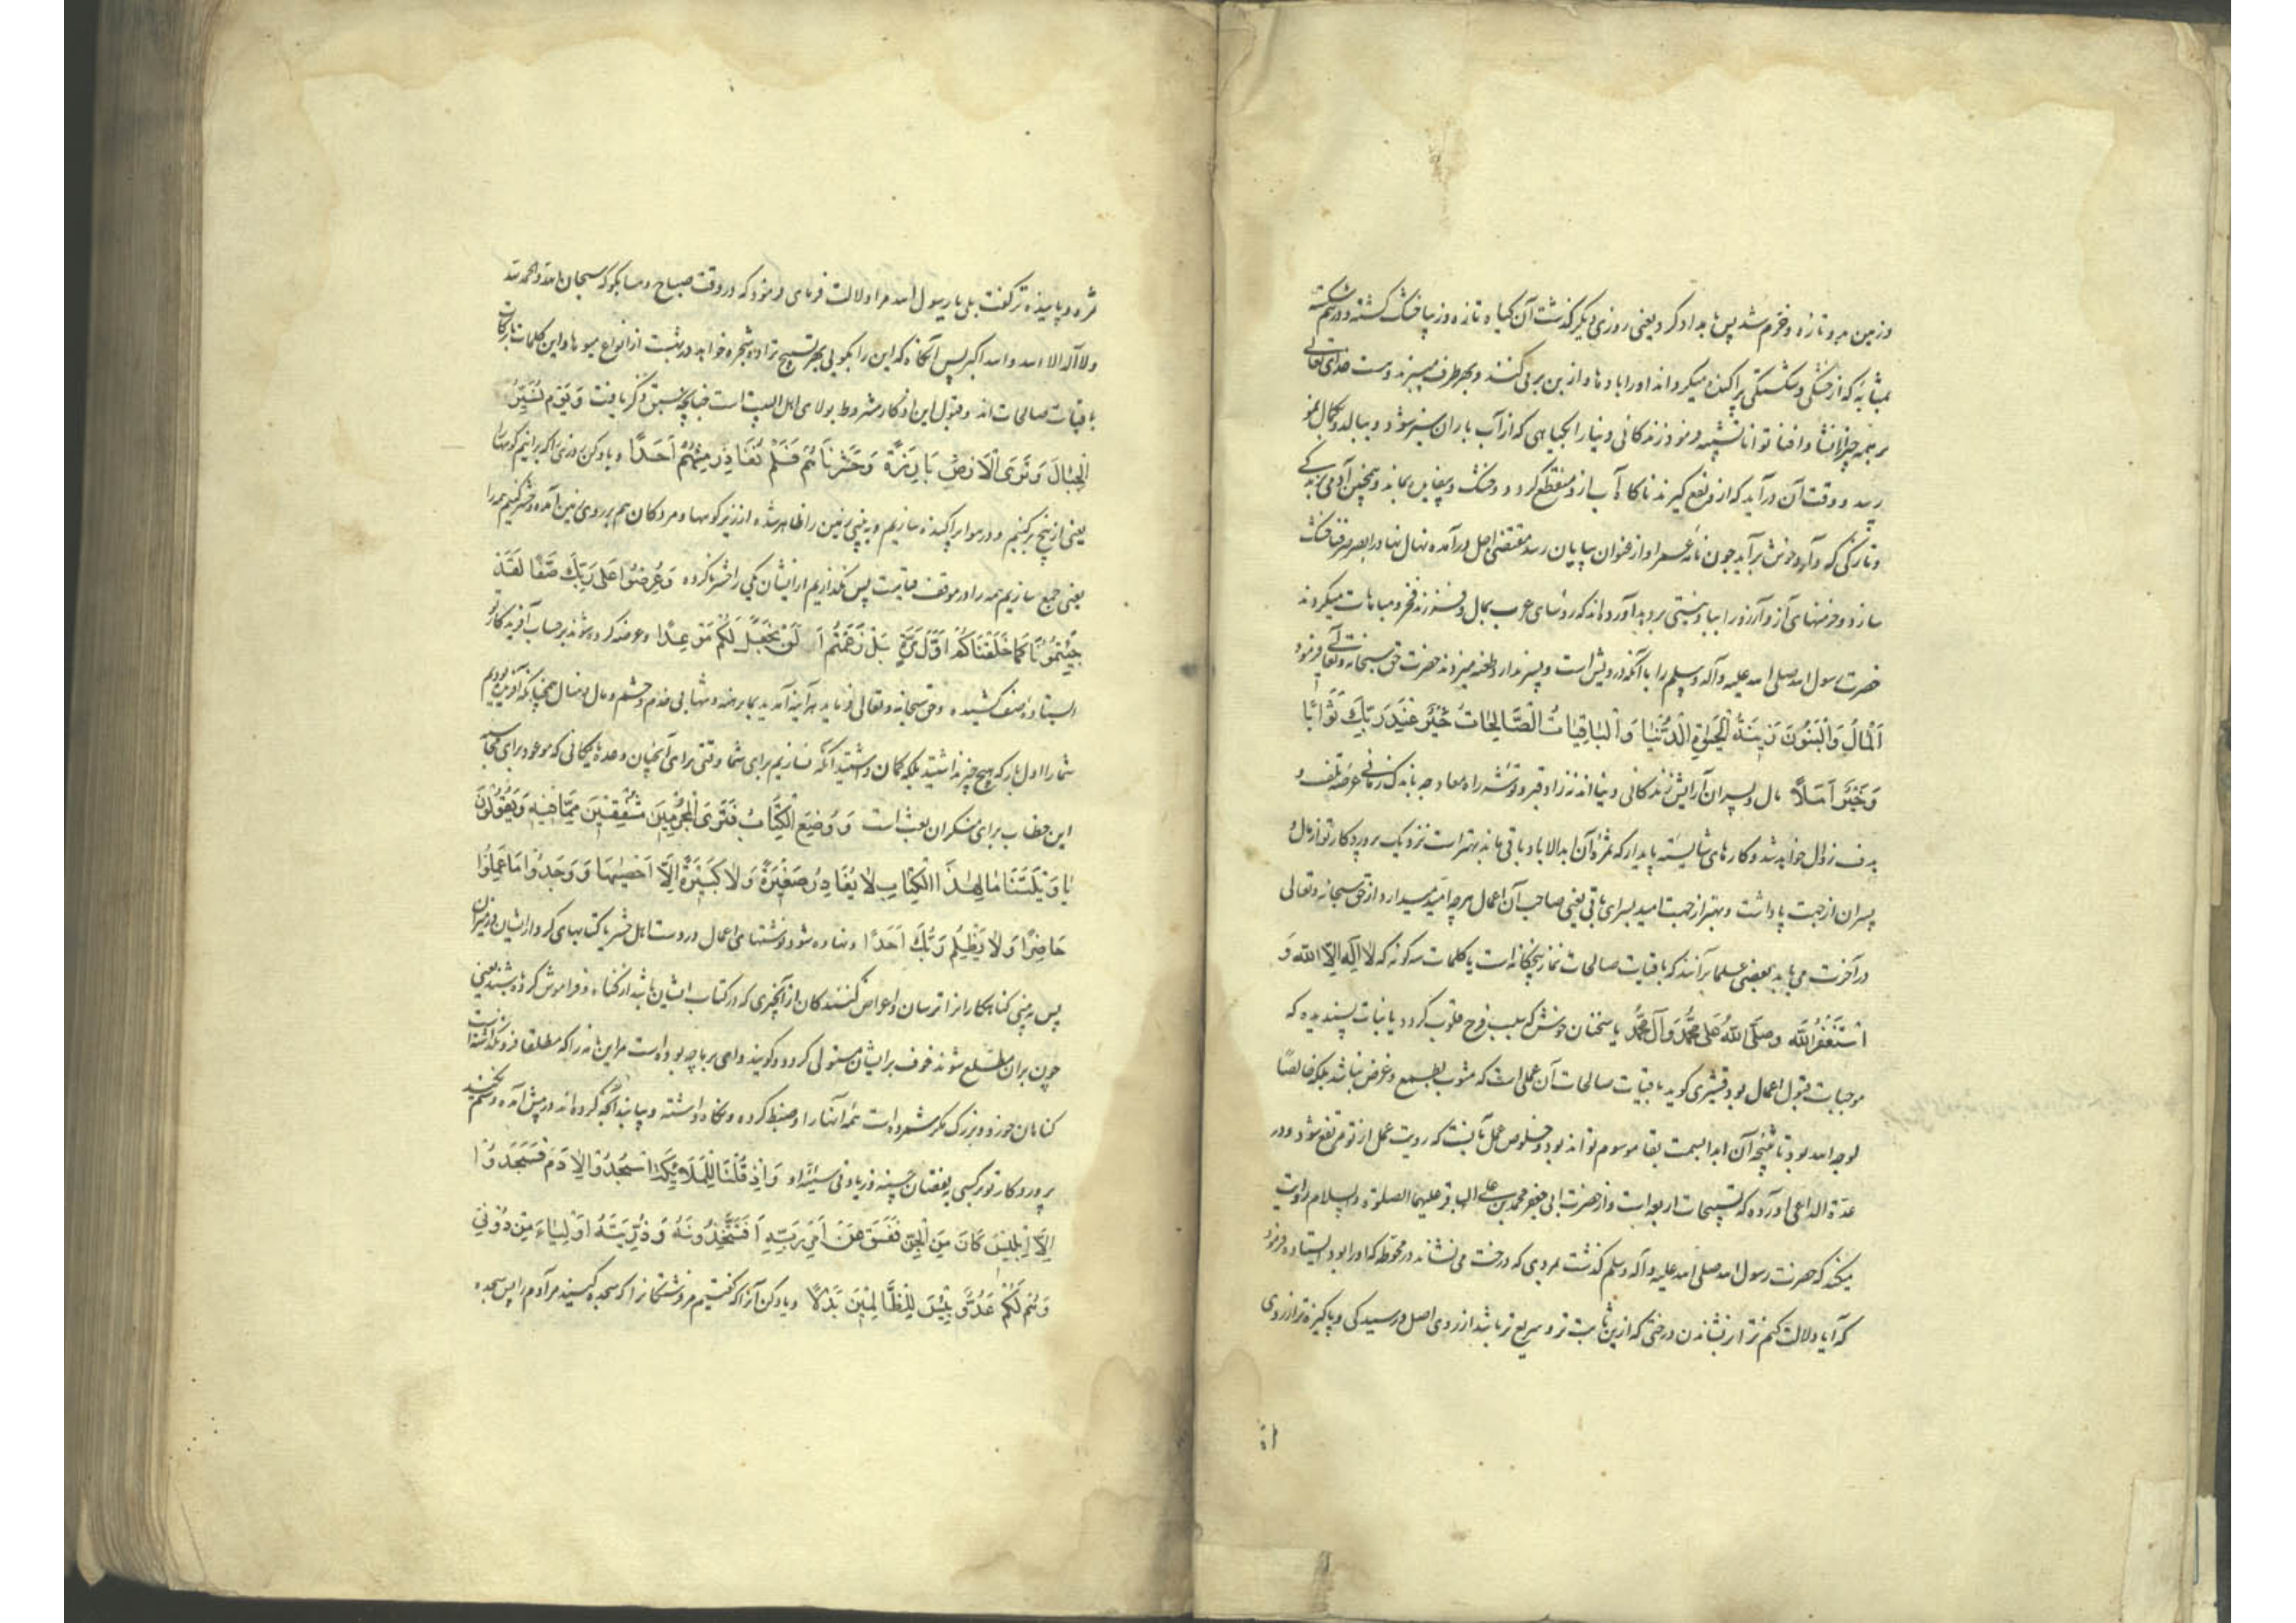 و زمین بدو تازه و خرم شد پس بامداد کرد یعنی روزی دیگر گذشت آن کیاه تازه و زیبا خشک کشته و درهم شکسته
بمثابهٔ که از خشکی و شکستگی پراکنده میکرداند او را بادها و از بن بر می کنند و بهر طرف میبرند و هست خدای تعالی
بر همه چیز از انشا و افنا توانا تشبیه فرمود زندکانی دنیا را بکیاهی که از آب باران سبز شود و ببالد و بکمال نمو
رسد و وقت آن درآید که ازو نفع کیرند ناکاه آب ازو منقطع کردد و خشک و بیفایده بماند و همچنین آدمی بزندکی
و تازکی که دارد خوش برآید چون نامهٔ عمر او از عنوان بپایان رسد مقتضی اجل درآمده نهال نهاد را بصرصر فنا خشک
سازد و خرمنهای آز و آرزو را بباد نیستی بر دهد آورده اند که رؤسای عرب بمال و فرزند فخر و مباهات میکردند
حضرت رسول الله صلی الله علیه و آله و سلم را با آنکه درویش است و پسر ندارد طعنه میزدند حضرت حق سبحانه و تعالی فرمود
اَلْمالُ وَالْبَنُونَ زِینَةُ الْحَیٰوةِ الدُّنْیا وَالْباقِیاتُ الصَّالِحاتُ خَیْرٌ عِنْدَ رَبِّکَ ثَوابًا
وَ خَیْرٌ اَمَلًا مال و پسران آرایش زندکانی دنیا اند نه زاد قبر و توشه راه معاد چه باندک زمانی عرضه تلف و
هدف زوال خواهد شد و کارهای شایسته پایدار که ثمره آن ابد الاباد باقی ماند بهتر است نزدیک پروردکار تو از مال و
پسران از جهت پاداشت و بهتر از جهت امید بسرای باقی یعنی صاحب آن اعمال هرچه امید میدارد از حق سبحانه و تعالی
در آخرت می یابد بعضی علما برآنند که باقیات صالحات نماز پنجکانه است یا کلمات سه کونه که لا اِلٰهَ اِلَّا اللّٰه وَ
اَسْتَغْفِرُ اللّٰه وَ صَلَّی اللّٰهُ عَلٰی مُحَمَّدٍ وَ آلِ مُحَمَّد یا سخنان خوش که سبب فرح قلوب کردد یا نیات پسندیده که
موجبات قبول اعمال بود قشیری کوید باقیات صالحات آن عملی است که مشوب بطمع و غرض نباشد بلکه خالصًا
لوجه الله بود تا نتیجه آن ابدا بسمت بقا موسوم تواند بود و خلوص عمل آنست که رویت عمل از تو مرتفع شود و در
عدة الداعی آورده که تسبیحات اربعه است و از حضرت ابی جعفر محمد بن علی الباقر علیهما الصلوة و السلام روایت
میکند که حضرت رسول الله صلی الله علیه و آله و سلم کذشت بمردی که درخت می نشاند در محوطه که او را بود ایستاده فرمود
که آیا دلالت کنم ترا بر نشاندن درختی که ازین ثابت تر و سریع تر باشد از روی اصل و رسیدکی و پاکیزه تر از روی
ثمره و پاینده تر کفت بلی یا رسول الله مرا دلالت فرمای فرمود که در وقت صباح و مسا بکو که سبحان الله و الحمد لله
و لا اله الا الله و الله اکبر پس آنکاه که این را بکویی بهر تسبیح ترا ده شجره خواهد بود در بهشت از انواع میوها و این کلمات بابرکات
باقیات صالحات اند و قبول این اذکار مشروط بولای اهل البیت است چنانچه سبق ذکر یافت وَ یَوْمَ نُسَیِّرُ
الْجِبٰالَ وَ تَرَی الْاَرْضَ بٰارِزَةً وَ حَشَرْنٰاهُمْ فَلَمْ نُغٰادِرْ مِنْهُمْ اَحَدًا و یاد کن روزی را که برانیم کوهها را
یعنی از بیخ برکنیم و در هوا پراکنده سازیم و به بینی زمین را ظاهر شده از زیر کوهها و مردکان هم بر روی زمین آمده و حشر کنیم همه را
یعنی جمع سازیم همه را در موقف قیامت پس نکذاریم از ایشان یکی را حشر ناکرده وَ عُرِضُوا عَلٰی رَبِّکَ صَفًّا لَقَدْ
جِئْتُمُونٰا کَمٰا خَلَقْنٰاکُمْ اَوَّلَ مَرَّةٍ بَلْ زَعَمْتُمْ اَلَّنْ نَجْعَلَ لَکُمْ مَوْعِدًا و عرضه کرده شوند بر حساب آفریدکار تو
ایستاده و صف کشیده و حق سبحانه و تعالی فرماید هر آینه آمدید بما برهنه و تنها بی خدم و حشم و مال و منال همچنانکه آفریده بودیم
شما را اول بار که هیچ چیز نداشتید بلکه کمان داشتید آنکه نسازیم برای شما وقتی برای انجیان وعده یا مکانی که موعود برای محاسبه
این خطاب برای منکران بعث است وَ وُضِعَ الْکِتٰابُ فَتَرَی الْمُجْرِمِینَ مُشْفِقِینَ مِمّٰا فِیهِ وَ یَقُولُونَ
یٰا وَیْلَتَنٰا مٰالِ هٰذَا الْکِتٰابِ لٰا یُغٰادِرُ صَغِیرَةً وَ لٰا کَبِیرَةً اِلّٰا اَحْصٰیهٰا وَ وَجَدُوا مٰا عَمِلُوا
حٰاضِرًا وَ لٰا یَظْلِمُ رَبُّکَ اَحَدًا و نهاده شود نوشتهای اعمال در دست اهل حشر یا کتابهای کردار ایشان در میزان
پس به بینی کناهکاران را ترسان و اعراض کنندکان از آنچیزی که در کتاب ایشان باشد از کناه و فراموش کرده باشند یعنی
چون بران مطلع شوند خوف بر ایشان مستولی کردد و کویند وای بر ما چه بوده است مر این نامه را که مطلقا فرو نکذاشته است
کناهان خورد و بزرک مکر شمرده است همه آنها را و ضبط کرده و نکاه داشته و بیابند آنچه کرده اند در پیش آمده و ستم نمیکند
پروردکار تو بر کسی بنقصان حسنه و زیادتی سیئه او وَ اِذْ قُلْنٰا لِلْمَلٰئِکَةِ اسْجُدُوا لِاٰدَمَ فَسَجَدُوا
اِلّٰا اِبْلِیسَ کٰانَ مِنَ الْجِنِّ فَفَسَقَ عَنْ اَمْرِ رَبِّهِ اَفَتَتَّخِذُونَهُ وَ ذُرِّیَّتَهُ اَوْلِیٰاءَ مِنْ دُونِی
وَ هُمْ لَکُمْ عَدُوٌّ بِئْسَ لِلظّٰالِمِینَ بَدَلًا و یاد کن آنرا که کفتیم مر فرشتکانرا که سجده کنید مر آدم را پس سجده